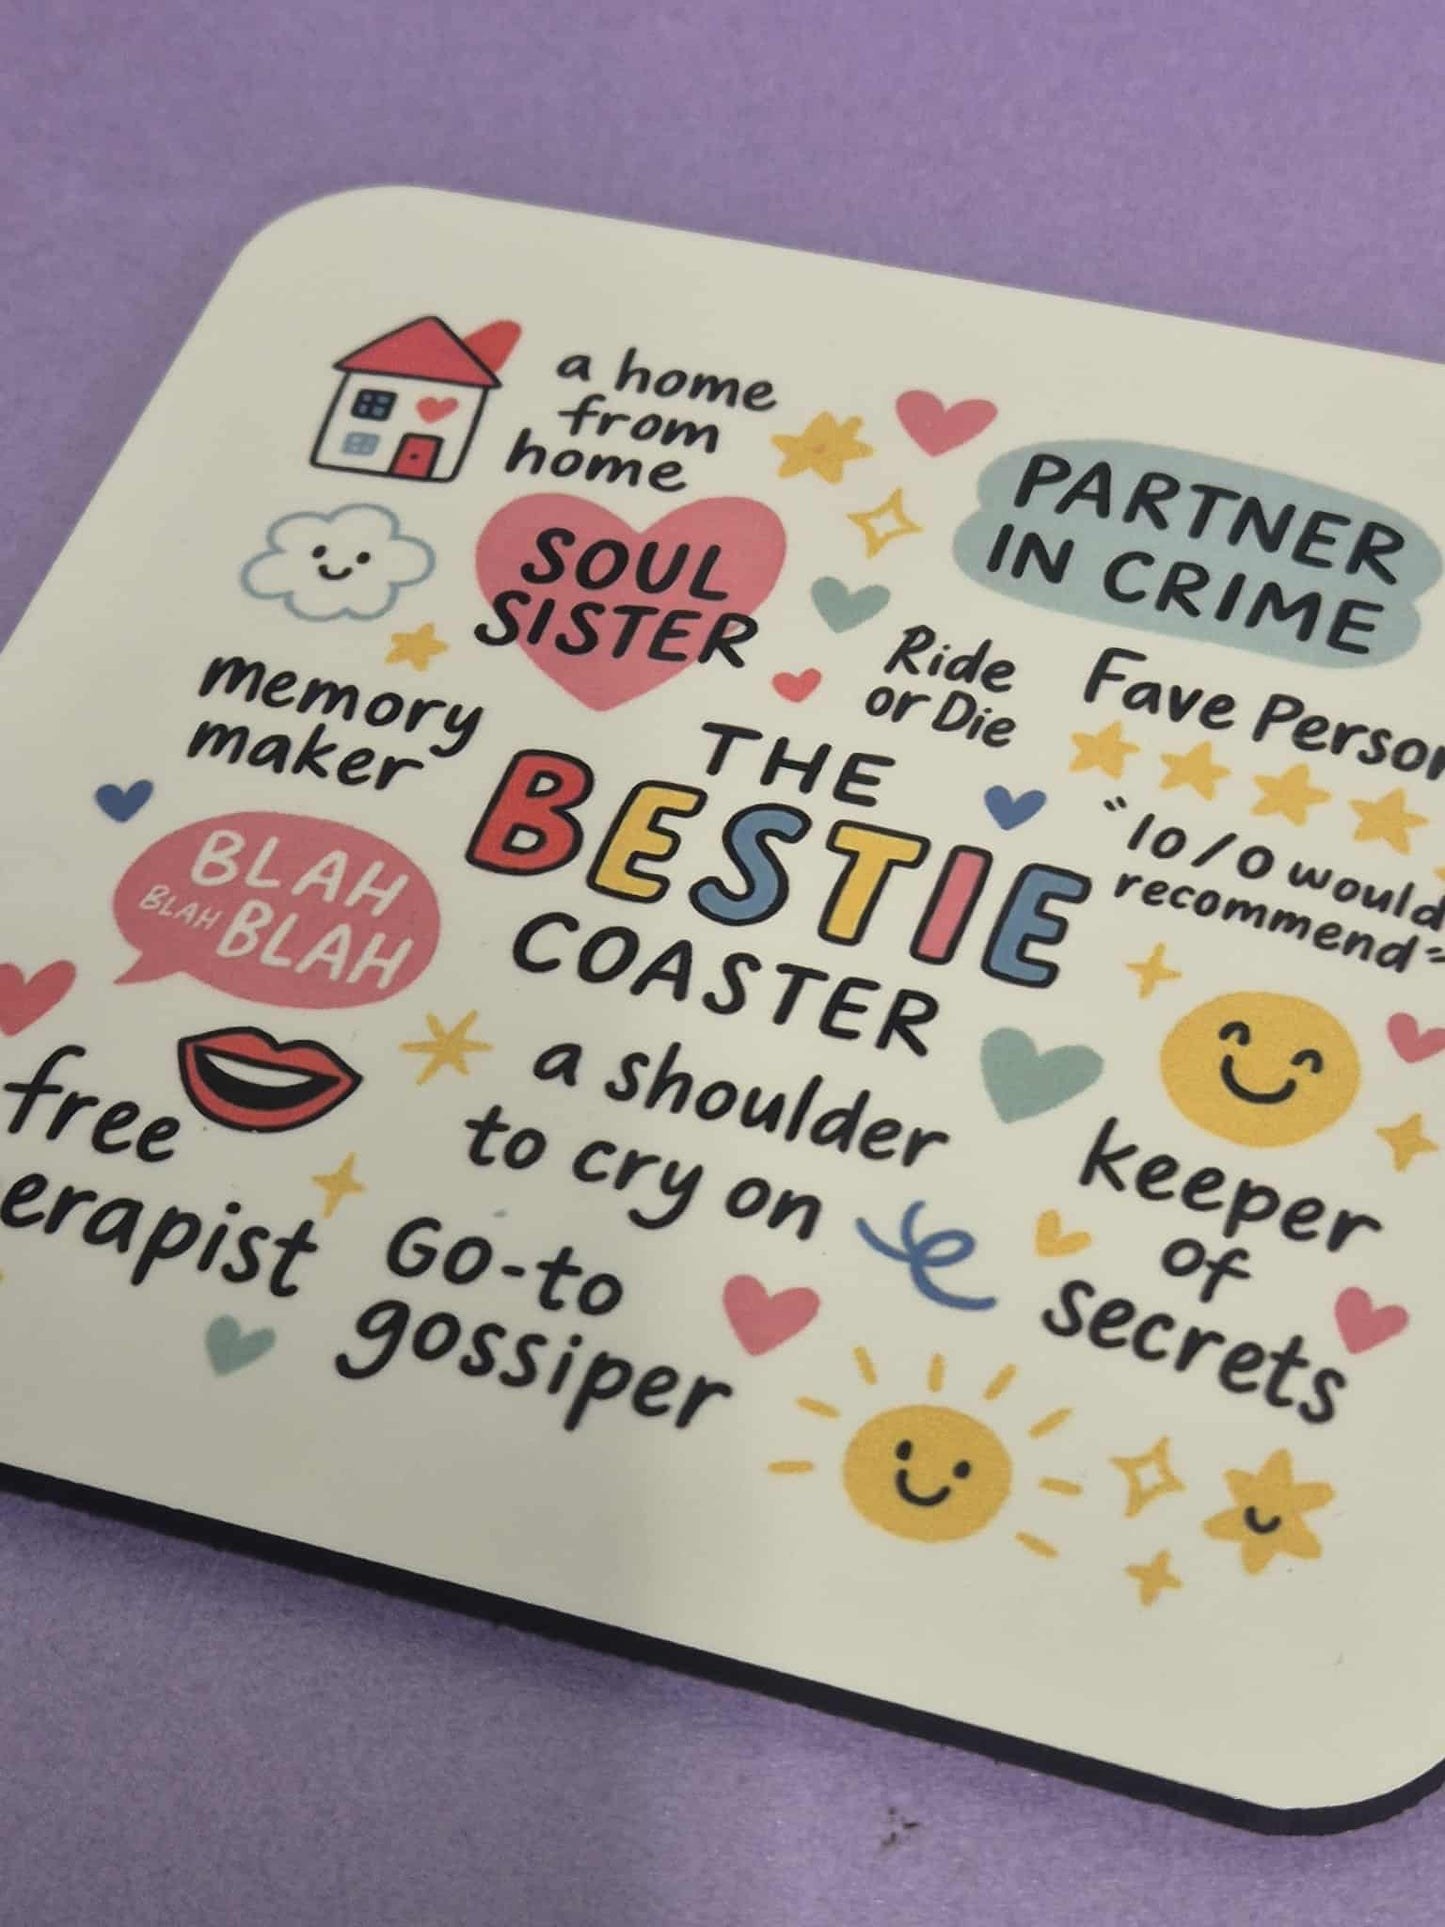 a home
from
home
PARTNER
IN CRIME
SOUL
SISTER
Ride
or Die
Fave Person
memory
maker
THE
BESTIE
COASTER
"10/0 would
recommend"
BLAH
BLAH BLAH
free
erapist
a shoulder
to cry on
keeper
of
secrets
Go-to
gossiper